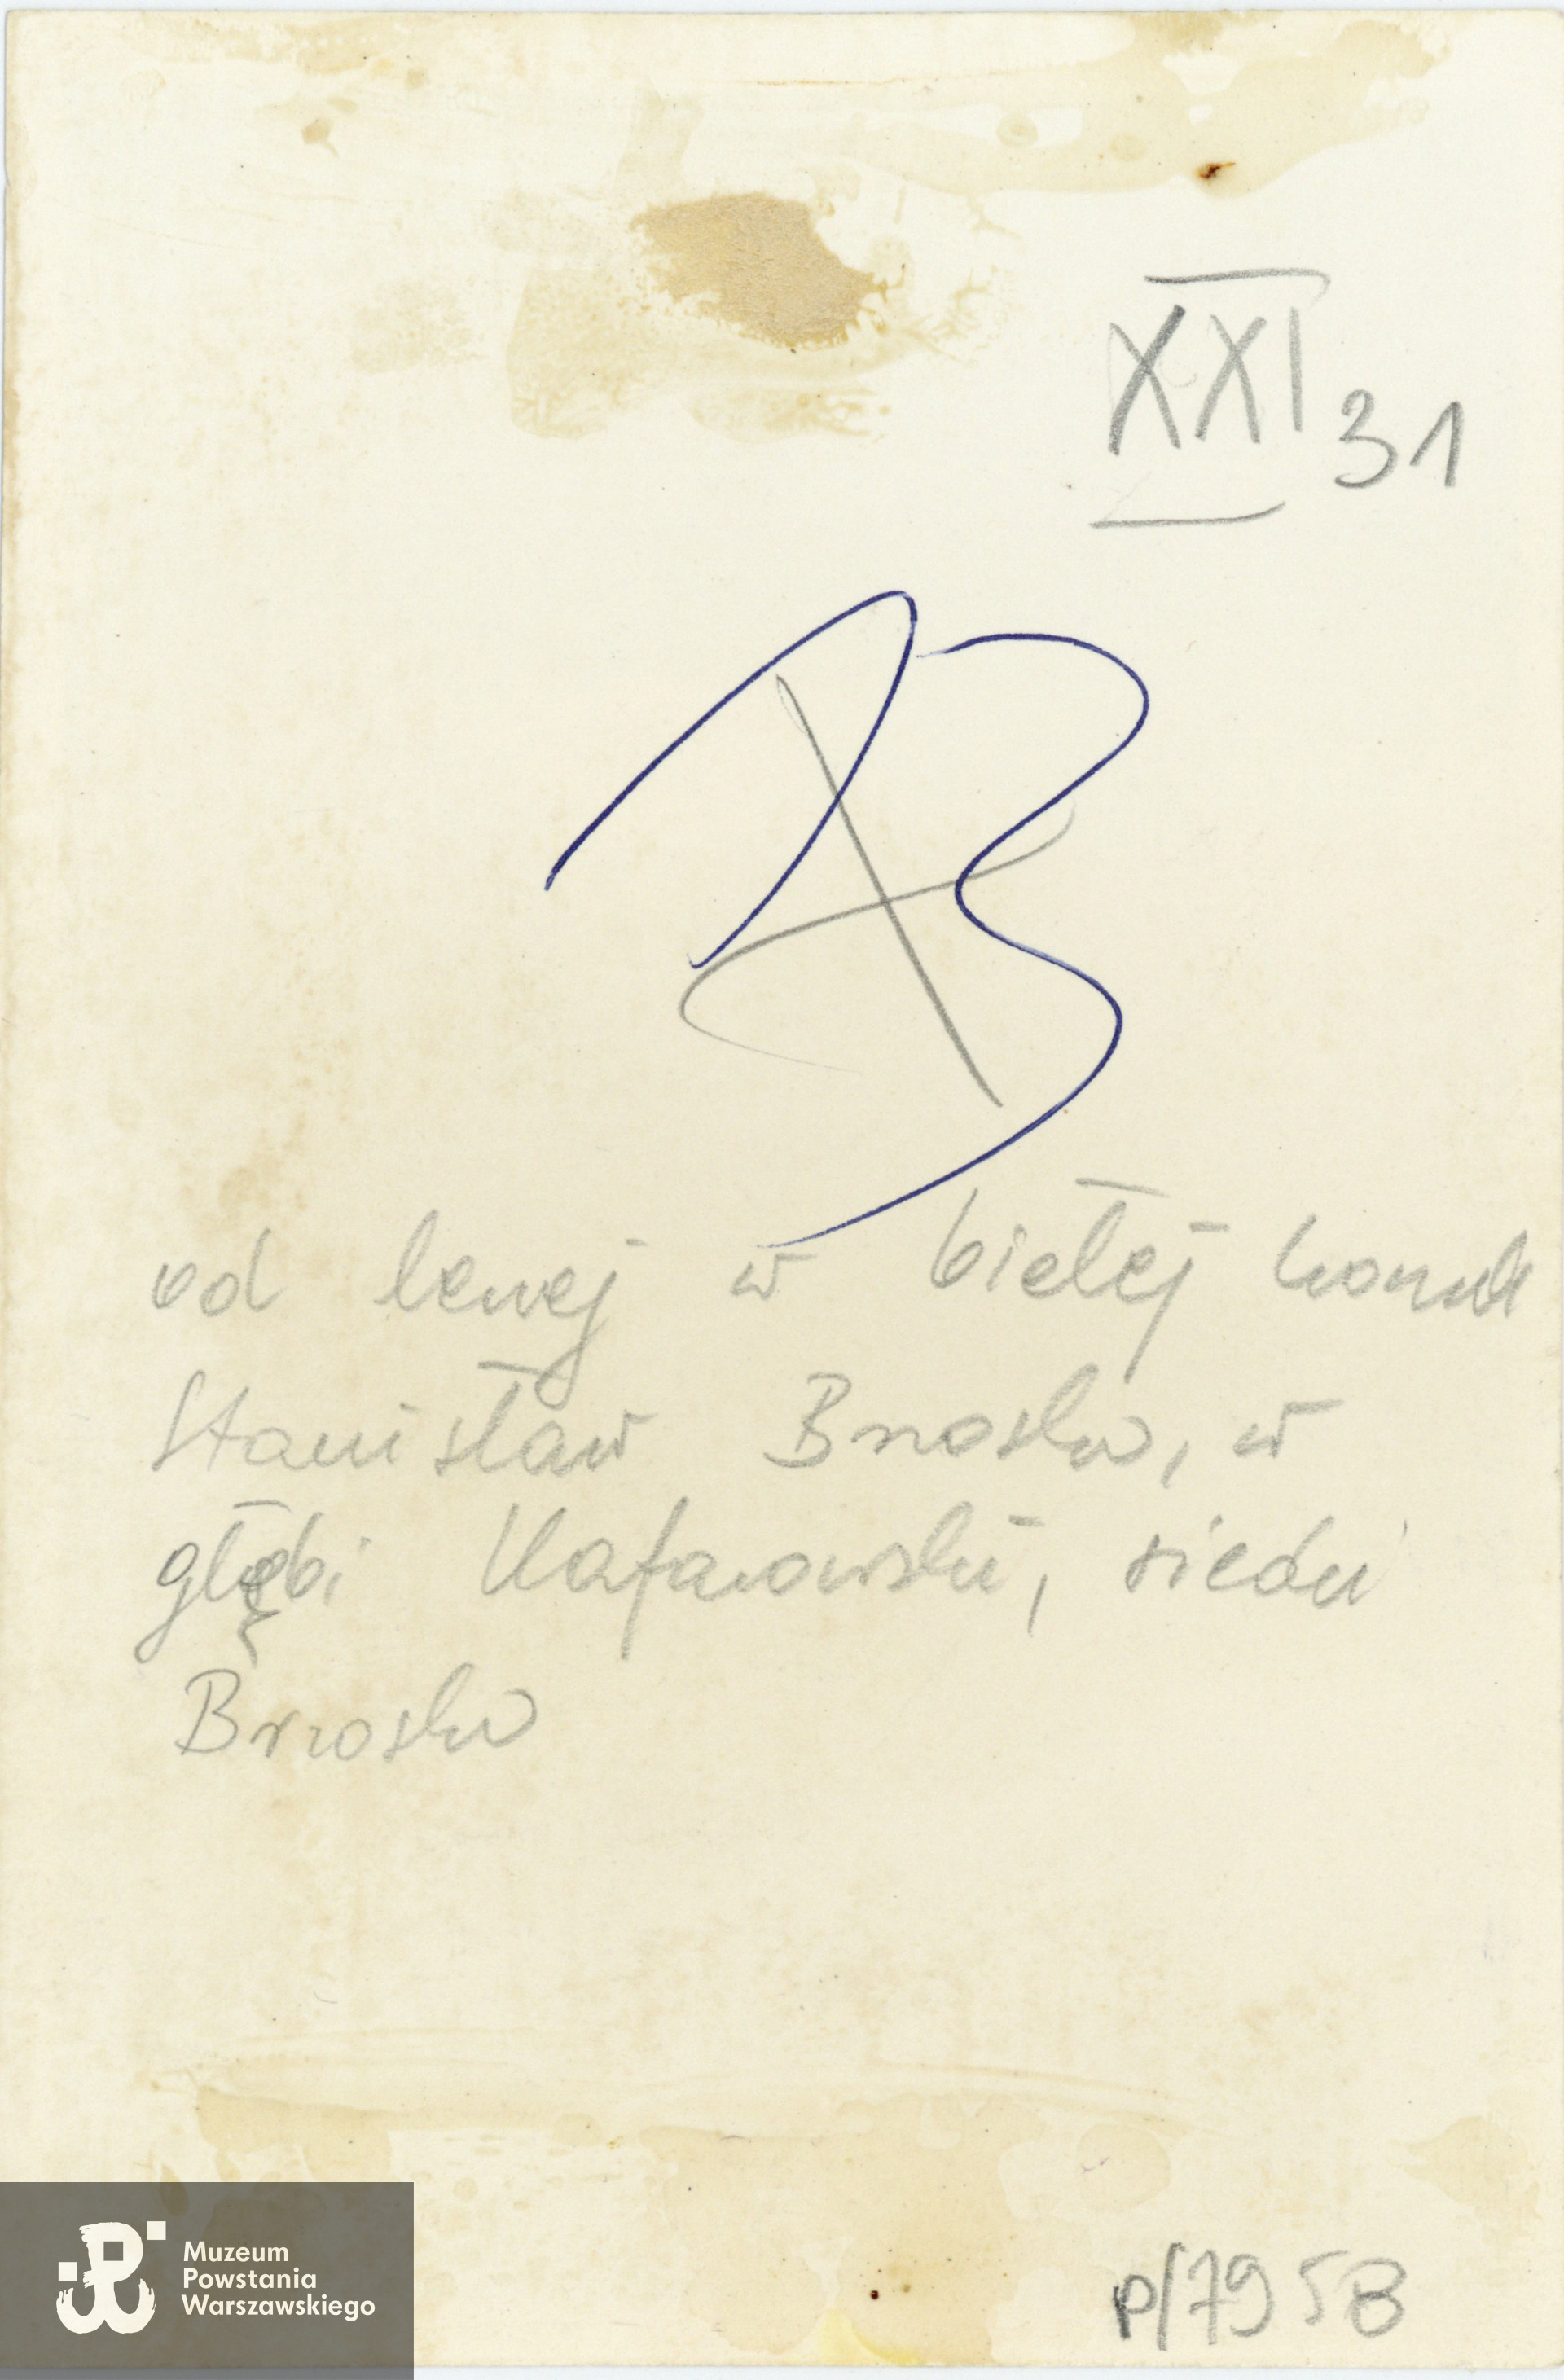 XXI 31
13
od lewej w białej
Stanisław Brzosko, w
głębi Kafarowski, siedzi
Brzosko
P/7958
Muzeum
Powstania
Warszawskiego